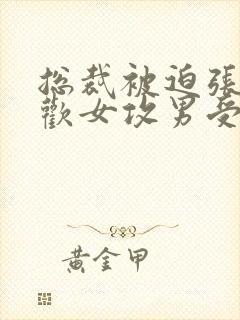 总裁被迫張
歡女攻男受
黄金甲